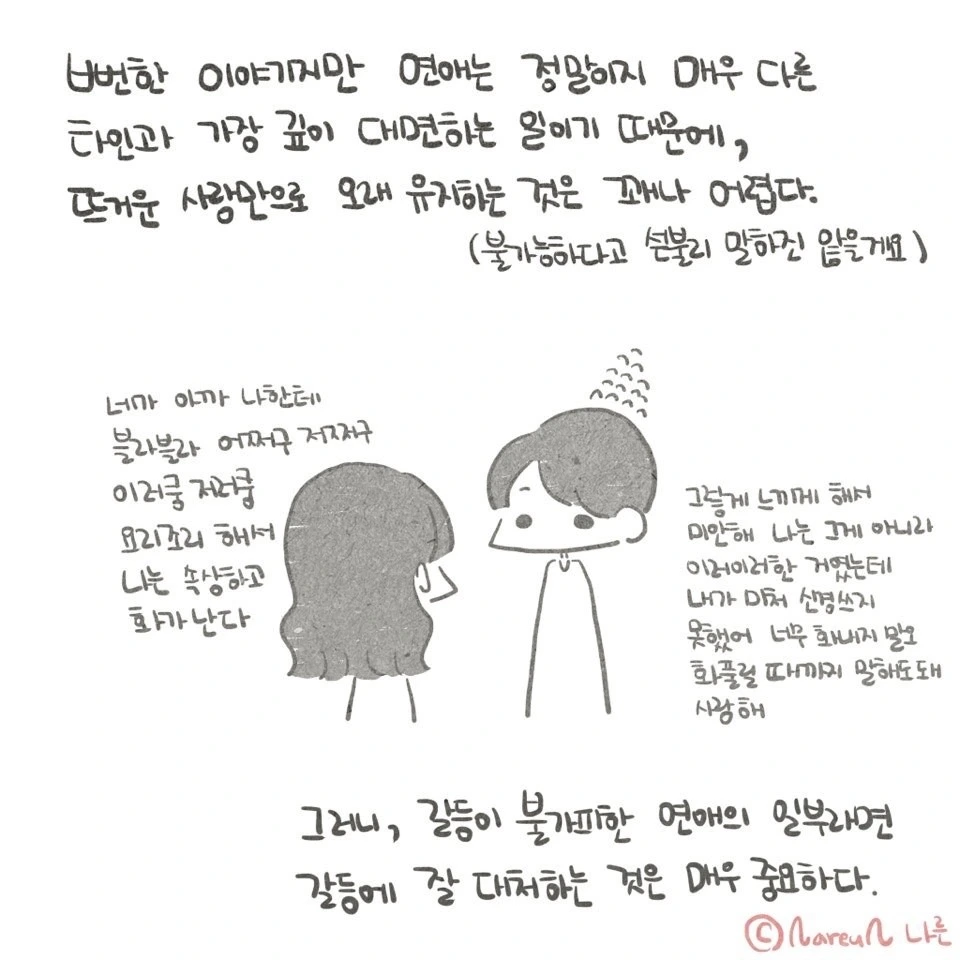 뻔한 이야기지만 연애는 정말이지 매우 다른
타인과 가장 깊이 대면하는 일이기 때문에,
뜨거운 사랑만으로 오래 유지하는 것은 꽤나 어렵다.
(불가능하다고 섣불리 말하진 않을게요)
너가 아까 나한테
블라블라 어쩌구 저쩌구
이러쿵 저러쿵
요리조리 해서
나는 속상하고
화가난다
그렇게 느끼게 해서
미안해 나는 그게 아니라
이러이러한 거였는데
내가 미처 신경쓰지
못했어 너무 화내지 말오
화풀릴 때까지 말해도돼
사랑해
그러니, 갈등이 불가피한 연애의 일부라면
갈등에 잘 대처하는 것은 매우 중요하다.
©NareuN 나른